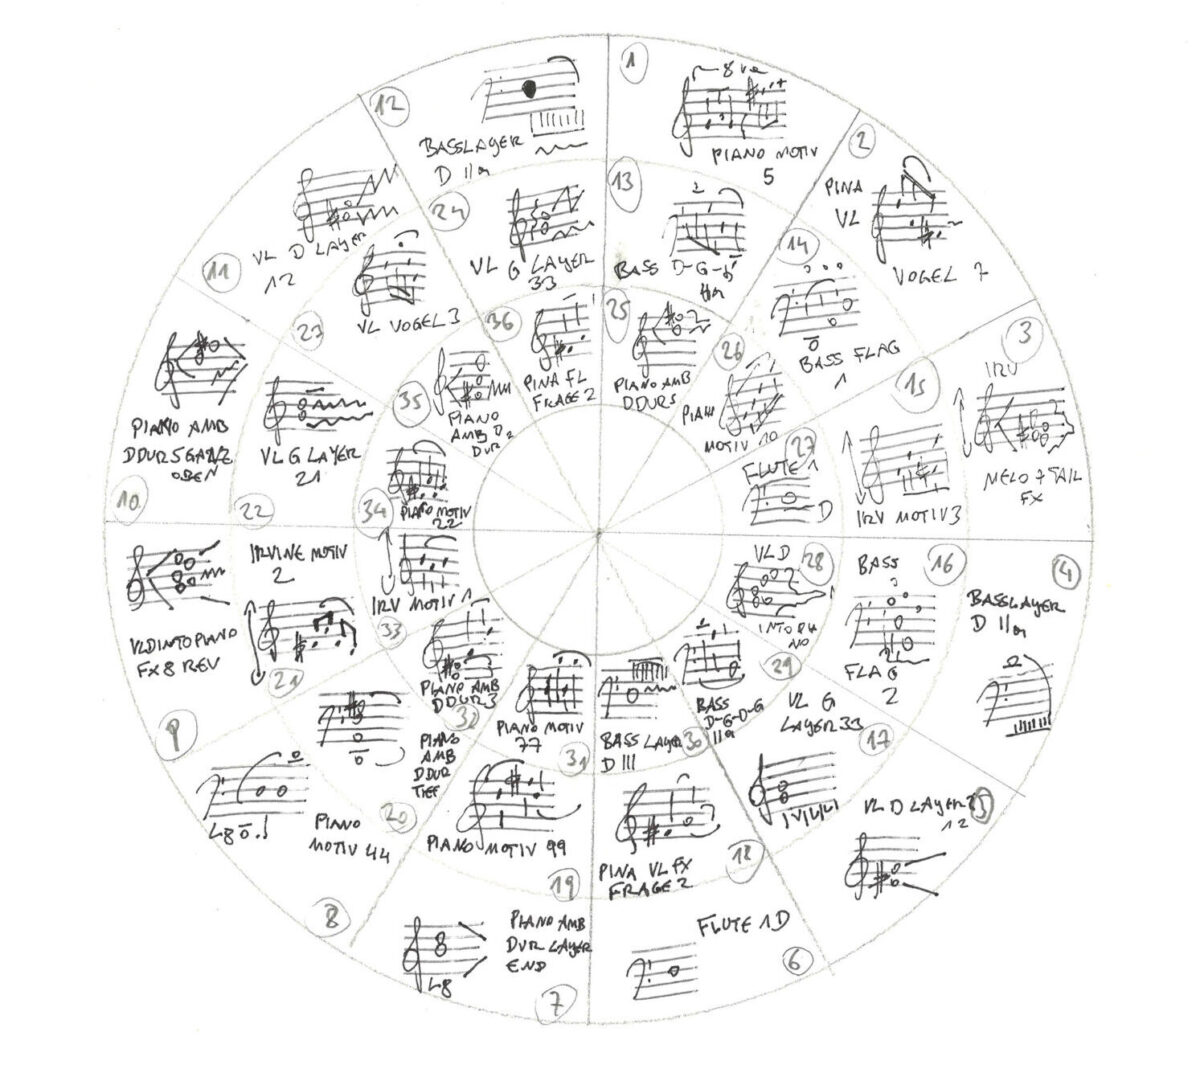 1
8va
PIANO MOTIV
5
2
PINA
VL
VOGEL 7
3
IRV
MELO 7 TAIL
FX
4
BASSLAYER
D IIa
5
VL D LAYER
12
6
FLUTE 1D
7
PIANO AMB
DUR LAYER
END
8
PIANO
MOTIV 44
9
VLDINTOPIANO
FX 8 REV
10
PIANO AMB
DDUR5GANZ
OBEN
11
VL D LAYER
12
12
BASSLAYER
D IIa
13
BASS D-G-D
IIa
14
BASS FLAG
1
15
IRV MOTIV3
16
BASS
FLAG
2
17
VL G
LAYER33
18
PINA VL FX
FRAGE 2
19
PIANO MOTIV 99
20
PIANO
AMB
DDUR
TIEF
21
IRVINE MOTIV
2
22
VL G LAYER
21
23
VL VOGEL 3
24
VL G LAYER
33
25
PIANO AMB
DDUR5
26
PIANI
MOTIV 10
27
FLUTE 1
D
28
VLD
INTOPIA
NO
29
BASS
D-G-D-G
IIa
30
BASS LAYER
D III
31
PIANO MOTIV
77
32
PIANO AMB
DDUR3
33
IRV MOTIV 1
34
PIANO MOTIV
22
35
PIANO
AMB D
DUR
2
36
PINA FL
FRAGE 2